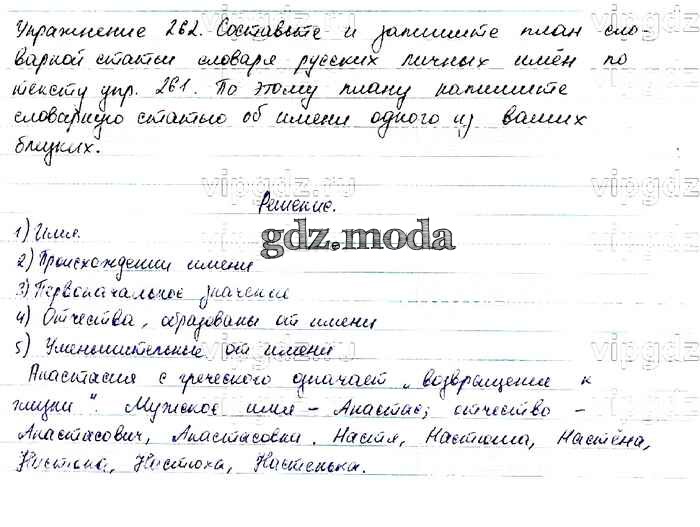 Упражнение 262. Составьте и запишите план сло-
варной статьи словаря русских личных имён по
тексту упр. 261. По этому плану напишите
словарную статью об имени одного из ваших
близких.
vipgdz.ru
Решение.
1) Имя.
gdz.moda
2) Происхождении имени
3) Первоначальное значение
4) Отчества, образованы от имени
5) Уменьшительные от имени
Анастасия с греческого означает „возвращение к
жизни“. Мужское имя – Анастас; отчество –
Анастасович, Анастасовна. Настя, Настюша, Настёна,
Настюха, Настенька.